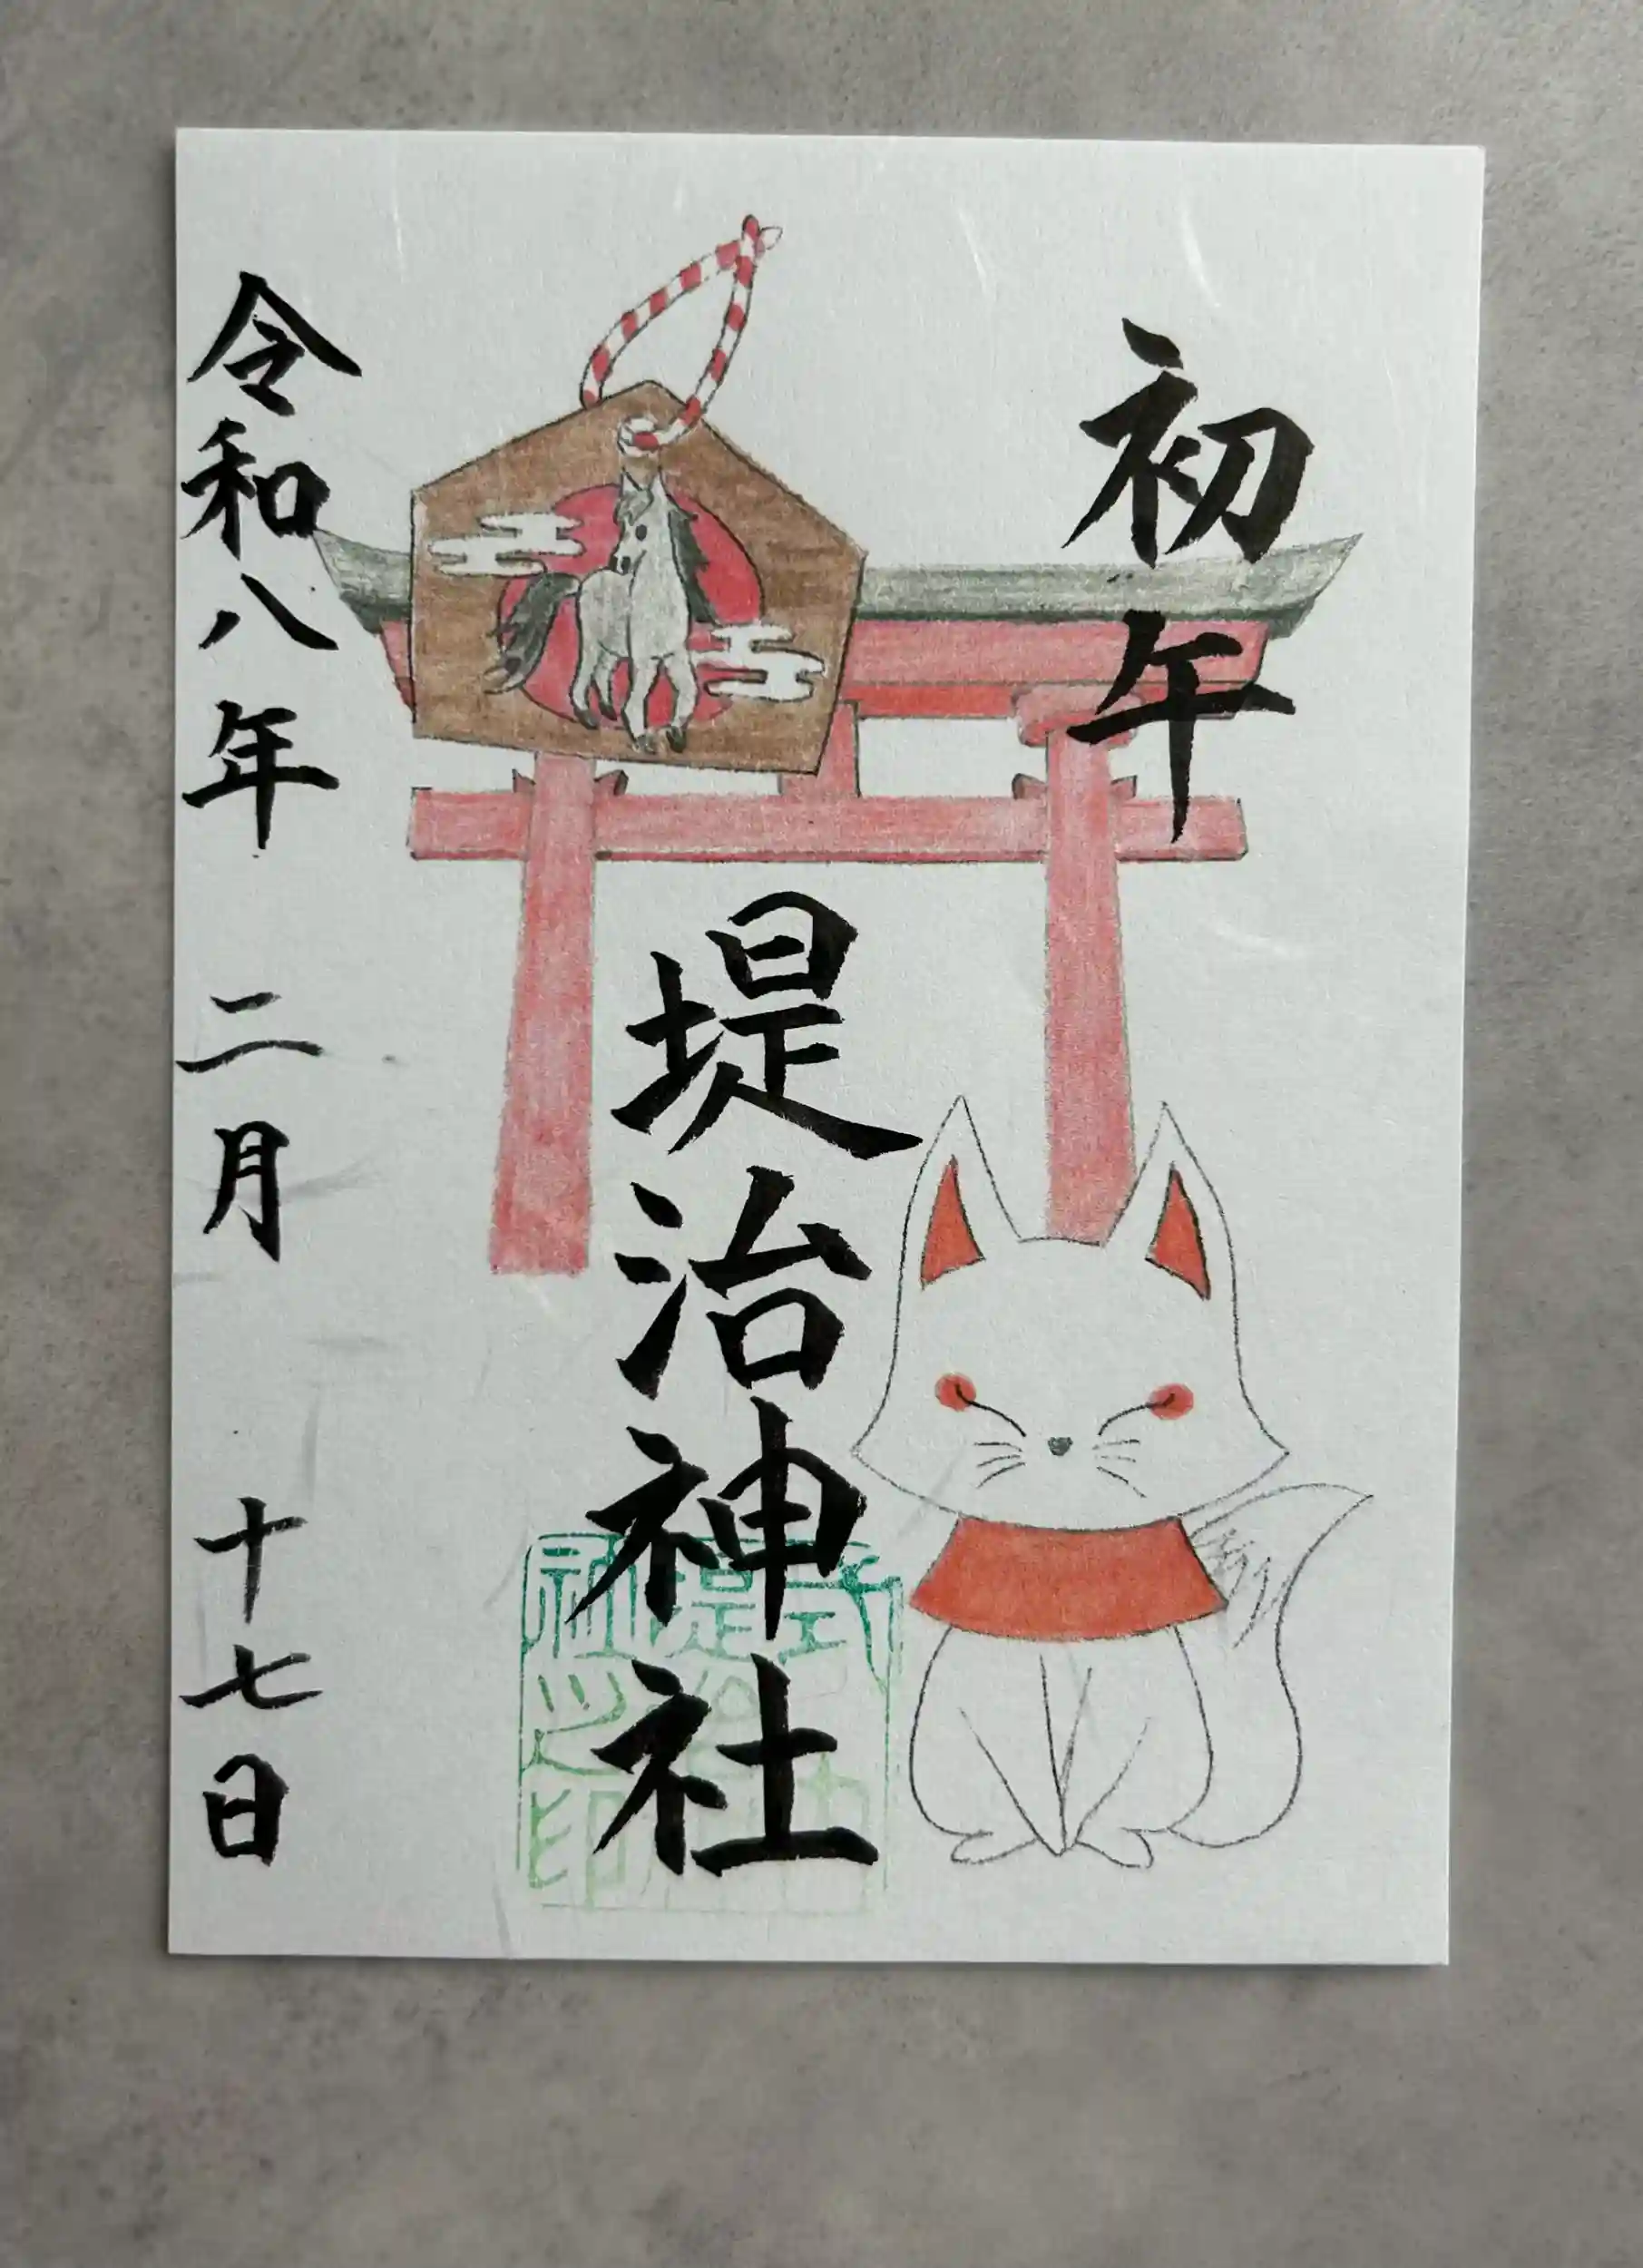 初午
堤治神社
令和八年 二月 十七日